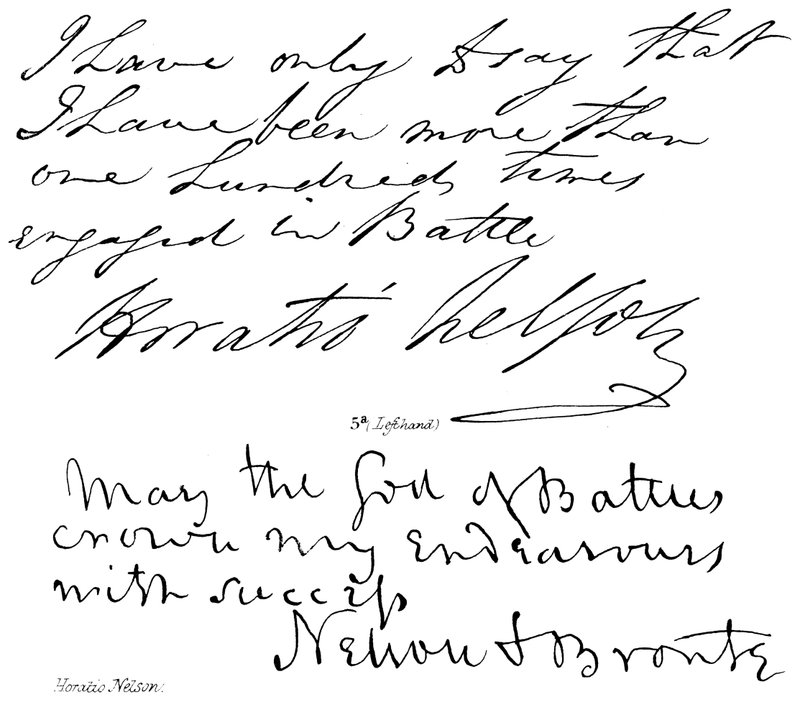 I have only to say that
I have been more than
one hundred times
engaged in Battle
Horatio Nelson
5ª (Left hand)
May the God of Battles
crown my endeavours
with success
Nelson & Bronte
Horatio Nelson.